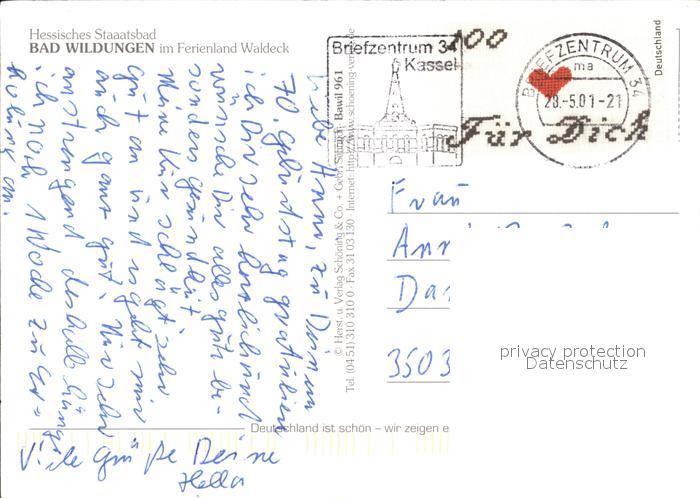 Hessisches Staaatsbad
BAD WILDUNGEN im Ferienland Waldeck
Liebe Anni, zu Deinem
70. Geburtstag gratuliere
ich Dir sehr herzlich und
wünsche Dir alles gute be-
sonders gesundheit
Meine Kur schlägt sehr
gut an und es geht mir
auch ganz gut. Nur sehr
anstrengend deshalb hänge
ich noch 1 Woche zur Er-
holung an.
Viele Grüße Deine
Hella
© Herst. u. Verlag Schöning & Co. + Gebr. Schmidt Bawil 961
Tel. (04 51) 310 310 0 · Fax 31 03 130 · Internet: http://www.schoening-verlag.de
Briefzentrum 34
Kassel
100
Für Dich
Deutschland
BRIEFZENTRUM 34
ma
28.-5.01-21
Frau
Ann
Da
3503
privacy protection
Datenschutz
Deutschland ist schön – wir zeigen e